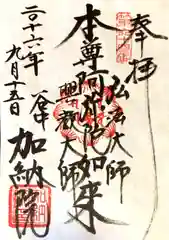 奉拝
弘法大師
本尊阿弥陀如来
興教大師
二〇十六年
九月十五日
谷中
加納院